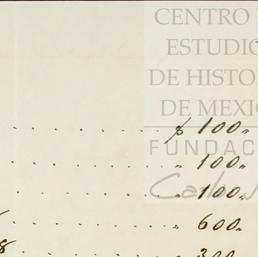 CENTRO
ESTUDIO
DE HISTO
DE MEXI
. . . . . . . . $ 100„
FUNDAC
. . . . . . . . „ 100„
. . . . . . . . „ 100„
. . . . . . . . „ 600„
8 . . . . . . . „ 300„